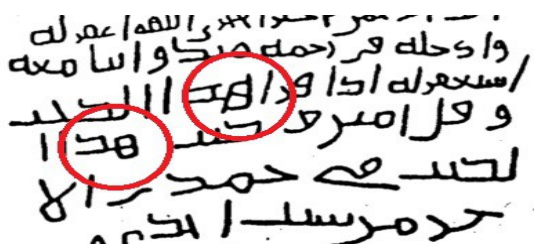 اللهم اغفر له
وادخله في رحمة منك واتنا معه
استغفر له اذا قرا هذا الكتب
وقل امين وكتب هذا ا
لكتب في جمدى الا
خر من سنت احدى و